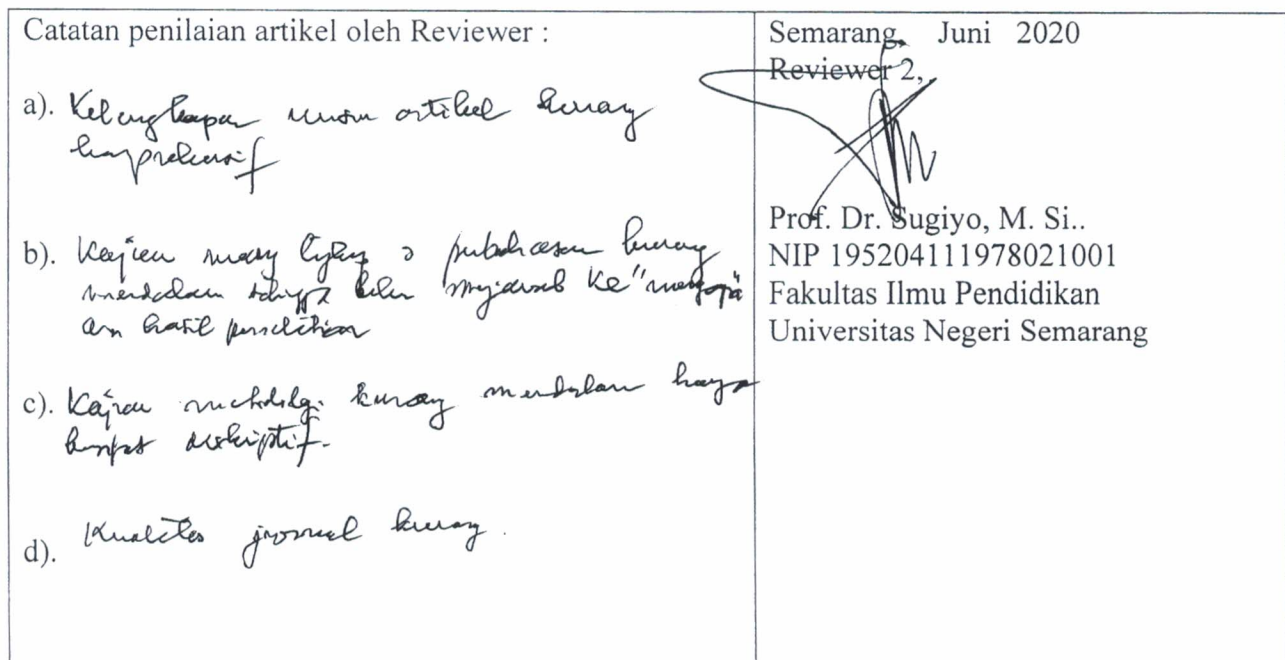 Catatan penilaian artikel oleh Reviewer :
a). Kelengkapan unsur artikel kurang
komprehensif
b). Kajian ruang lingkup & pembahasan kurang
mendalam sehingga belum menjawab ke"mengapa"
an hasil penelitian
c). Kajian metodologi kurang mendalam hanya
deskriptif.
d). Kualitas jurnal kurang.
Semarang, Juni 2020
Reviewer 2,
Prof. Dr. Sugiyo, M. Si..
NIP 195204111978021001
Fakultas Ilmu Pendidikan
Universitas Negeri Semarang